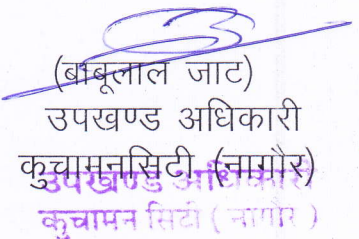 (बाबूलाल जाट)
उपखण्ड अधिकारी
कुचामनसिटी (नागौर)
उपखण्ड अधिकारी
कुचामन सिटी ( नागौर )